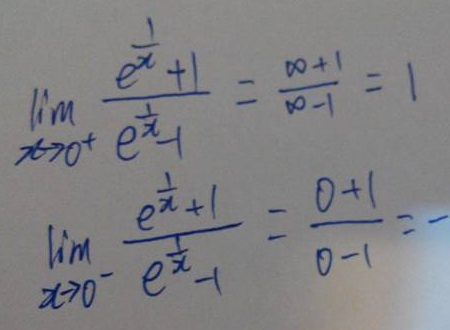 lim x→0⁺ (e^(1/x) + 1)/(e^(1/x) - 1) = (∞+1)/(∞-1) = 1
lim x→0⁻ (e^(1/x) + 1)/(e^(1/x) - 1) = (0+1)/(0-1) = -